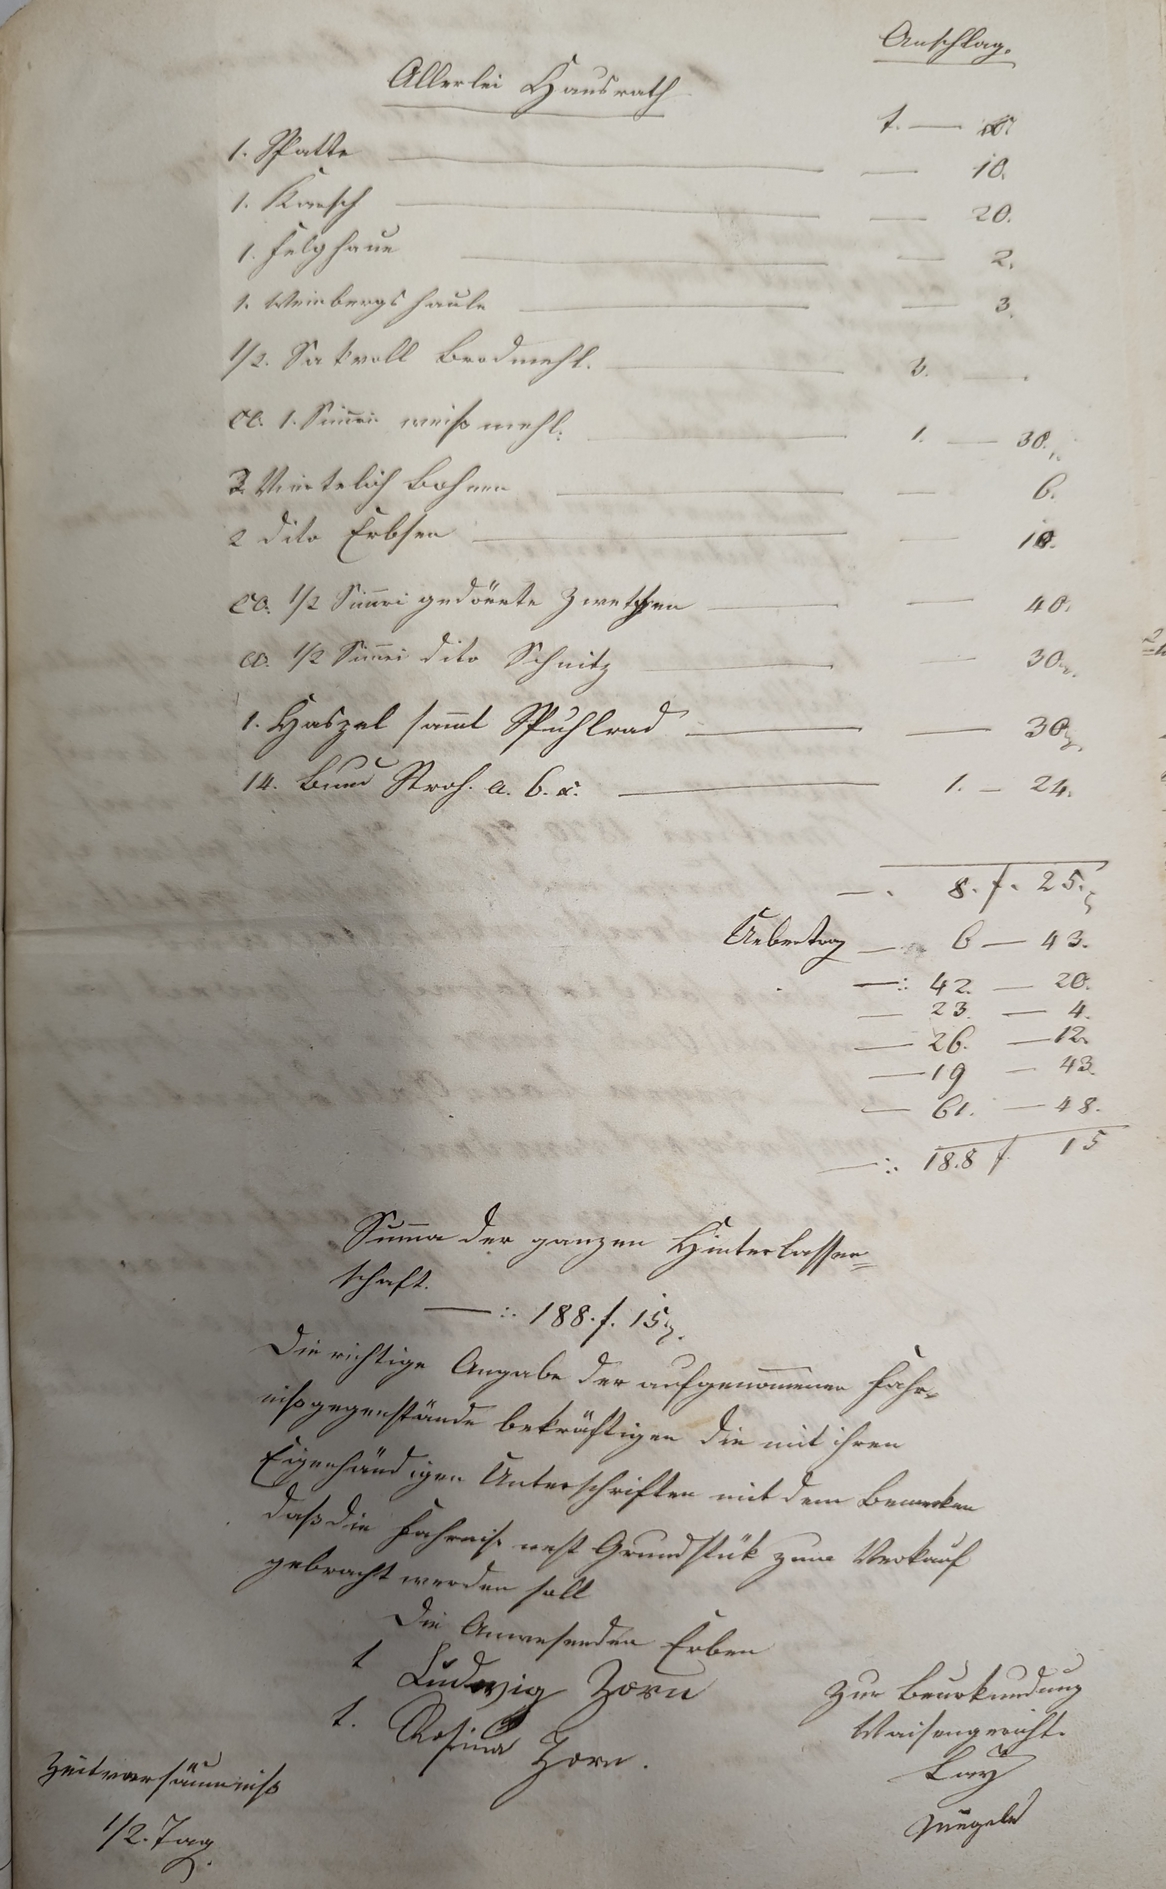 Anschlag.
Allerlei Hausrath
f. — x.
1. Spatte — — 10.
1. Karsch — — 20.
1. Felghaue — — 2.
1. Weinbergs haule — — 3.
1/2. Sakvoll Brodmehl. — 3. — .
ca. 1. Simri weiss mehl. — 1. — 30.
3 Viertelich Bohnen — — 6.
2 dito Erbsen — — 10.
ca. 1/2 Simri gedörrte Zwetschgen — — 40.
ca. 1/2 Simri dito Schnitz — — 30x.
1. Haspel sammt Spuhlrad — — 30x.
14. Bund Stroh. a. 6. x. — 1. — 24.
— . 8. f. 25. x
Uebertrag — 6 — 43.
—:: 42. — 20.
— 23. — 4.
— 26. — 12.
— 19 — 43.
— 61. — 48.
—:. 188 f. 15
Summa der ganzen Hinterlassen=
schaft.
—:. 188. f. 15x.
Die richtige Angabe der aufgenommenen Fahr-
nißgegenstände bekräftigen die mit ihren
Eigenhändigen Unterschriften mit dem Bemerken
daß die Fahrniß nest Grundstük zum Verkauf
gebracht werden soll
Die Anwesenden Erben
t Ludwig Zorn
t. Rosina Zorn.
Zur Beurkundung
Waisengericht.
Lay
Zeitversäumniß
1/2. Tag.